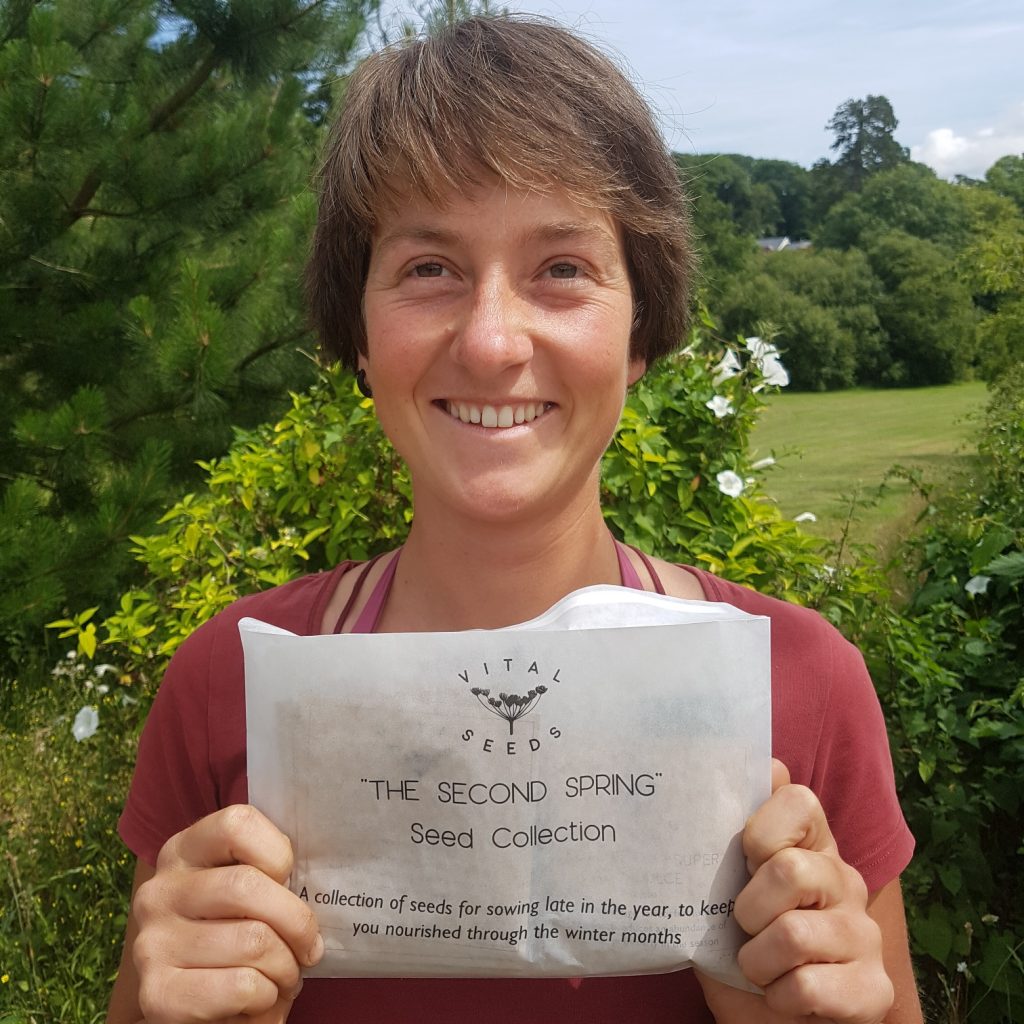 VITAL
SEEDS
"THE SECOND SPRING"
Seed Collection
SUPER
A collection of seeds for sowing late in the year, to keep
you nourished through the winter months
season